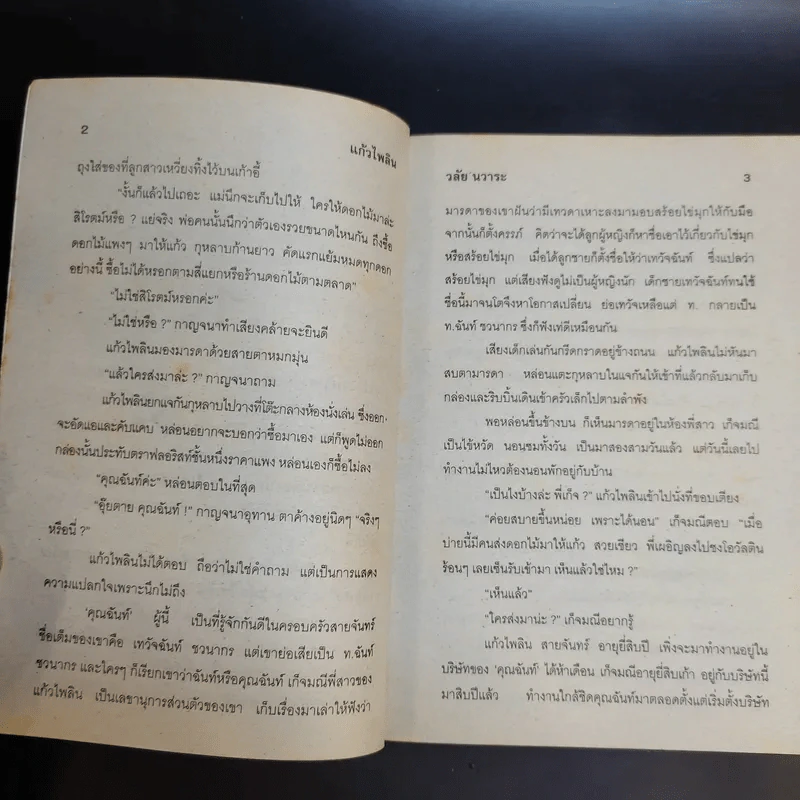 2
แก้วไพลิน
ถุงใส่ของที่ลูกสาวเหวี่ยงทิ้งไว้บนเก้าอี้
"งั้นก็แล้วไปเถอะ แม่นึกจะเก็บไปให้ ใครให้ดอกไม้มาล่ะ
สิโรตม์หรือ ? แย่จริง พ่อคนนั้นนึกว่าตัวเองรวยขนาดไหนกัน ถึงซื้อ
ดอกไม้แพงๆ มาให้แก้ว กุหลาบก้านยาว คัดแรกแย้มหมดทุกดอก
อย่างนี้ ซื้อไม่ได้หรอกตามสี่แยกหรือร้านดอกไม้ตามตลาด"
"ไม่ใช่สิโรตม์หรอกค่ะ"
"ไม่ใช่หรือ ?" กาญจนาทำเสียงคล้ายจะยินดี
แก้วไพลินมองมารดาด้วยสายตาหมกมุ่น
"แล้วใครส่งมาล่ะ ?" กาญจนาถาม
แก้วไพลินยกแจกันกุหลาบไปวางที่โต๊ะกลางห้องนั่งเล่น ซึ่งออก
จะอัดแอและคับแคบ หล่อนอยากจะบอกว่าซื้อมาเอง แต่ก็พูดไม่ออก
กล่องนั้นประทับตราฟลอริสท์ชั้นหนึ่งราคาแพง หล่อนเองก็ซื้อไม่ลง
"คุณฉันท์ค่ะ" หล่อนตอบในที่สุด
"อุ๊ยตาย คุณฉันท์ !" กาญจนาอุทาน ตาค้างอยู่นิดๆ "จริงๆ
หรือนี่ ?"
แก้วไพลินไม่ได้ตอบ ถือว่าไม่ใช่คำถาม แต่เป็นการแสดง
ความแปลกใจเพราะนึกไม่ถึง
'คุณฉันท์' ผู้นี้ เป็นที่รู้จักกันดีในครอบครัวสายจันทร์
ชื่อเต็มของเขาคือ เทวัจฉันท์ ชวนากร แต่เขาย่อเสียเป็น ท.ฉันท์
ชวนากร และใครๆ ก็เรียกเขาว่าฉันท์หรือคุณฉันท์ เก็จมณีพี่สาวของ
แก้วไพลิน เป็นเลขานุการส่วนตัวของเขา เก็บเรื่องมาเล่าให้ฟังว่า
วลัย นวาระ
3
มารดาของเขาฝันว่ามีเทวดาเหาะลงมามอบสร้อยไข่มุกให้กับมือ
จากนั้นก็ตั้งครรภ์ คิดว่าจะได้ลูกผู้หญิงก็หาชื่อเอาไว้เกี่ยวกับไข่มุก
หรือสร้อยไข่มุก เมื่อได้ลูกชายก็ตั้งชื่อให้ว่าเทวัจฉันท์ ซึ่งแปลว่า
สร้อยไข่มุก แต่เสียงฟังดูไม่เป็นผู้หญิงนัก เด็กชายเทวัจฉันท์ทนใช้
ชื่อนี้มาจนโตจึงหาโอกาสเปลี่ยน ย่อเทวัจเหลือแต่ ท. กลายเป็น
ท.ฉันท์ ชวนากร ซึ่งก็ฟังเท่ดีเหมือนกัน
เสียงเด็กเล่นกันกรีดกราดอยู่ข้างถนน แก้วไพลินไม่หันมา
สบตามารดา หล่อนแตะกุหลาบในแจกันให้เข้าที่แล้วกลับมาเก็บ
กล่องและริบบิ้นเดินเข้าครัวเล็กไปตามลำพัง
พอหล่อนขึ้นข้างบน ก็เห็นมารดาอยู่ในห้องพี่สาว เก็จมณี
เป็นไข้หวัด นอนซมทั้งวัน เป็นมาสองสามวันแล้ว แต่วันนี้เลยไป
ทำงานไม่ไหวต้องนอนพักอยู่กับบ้าน
"เป็นไงบ้างล่ะ พี่เก็จ ?" แก้วไพลินเข้าไปนั่งที่ขอบเตียง
"ค่อยสบายขึ้นหน่อย เพราะได้นอน" เก็จมณีตอบ "เมื่อ
บ่ายนี้มีคนส่งดอกไม้มาให้แก้ว สวยเชียว พี่เผอิญลงไปชงโอวัลติน
ร้อนๆ เลยเซ็นรับเข้ามา เห็นแล้วใช่ไหม ?"
"เห็นแล้ว"
"ใครส่งมาน่ะ ?" เก็จมณีอยากรู้
แก้วไพลิน สายจันทร์ อายุยี่สิบปี เพิ่งจะมาทำงานอยู่ใน
บริษัทของ 'คุณฉันท์' ได้ห้าเดือน เก็จมณีอายุยี่สิบเก้า อยู่กับบริษัทนี้
มาสิบปีแล้ว ทำงานใกล้ชิดคุณฉันท์มาตลอดตั้งแต่เริ่มตั้งบริษัท